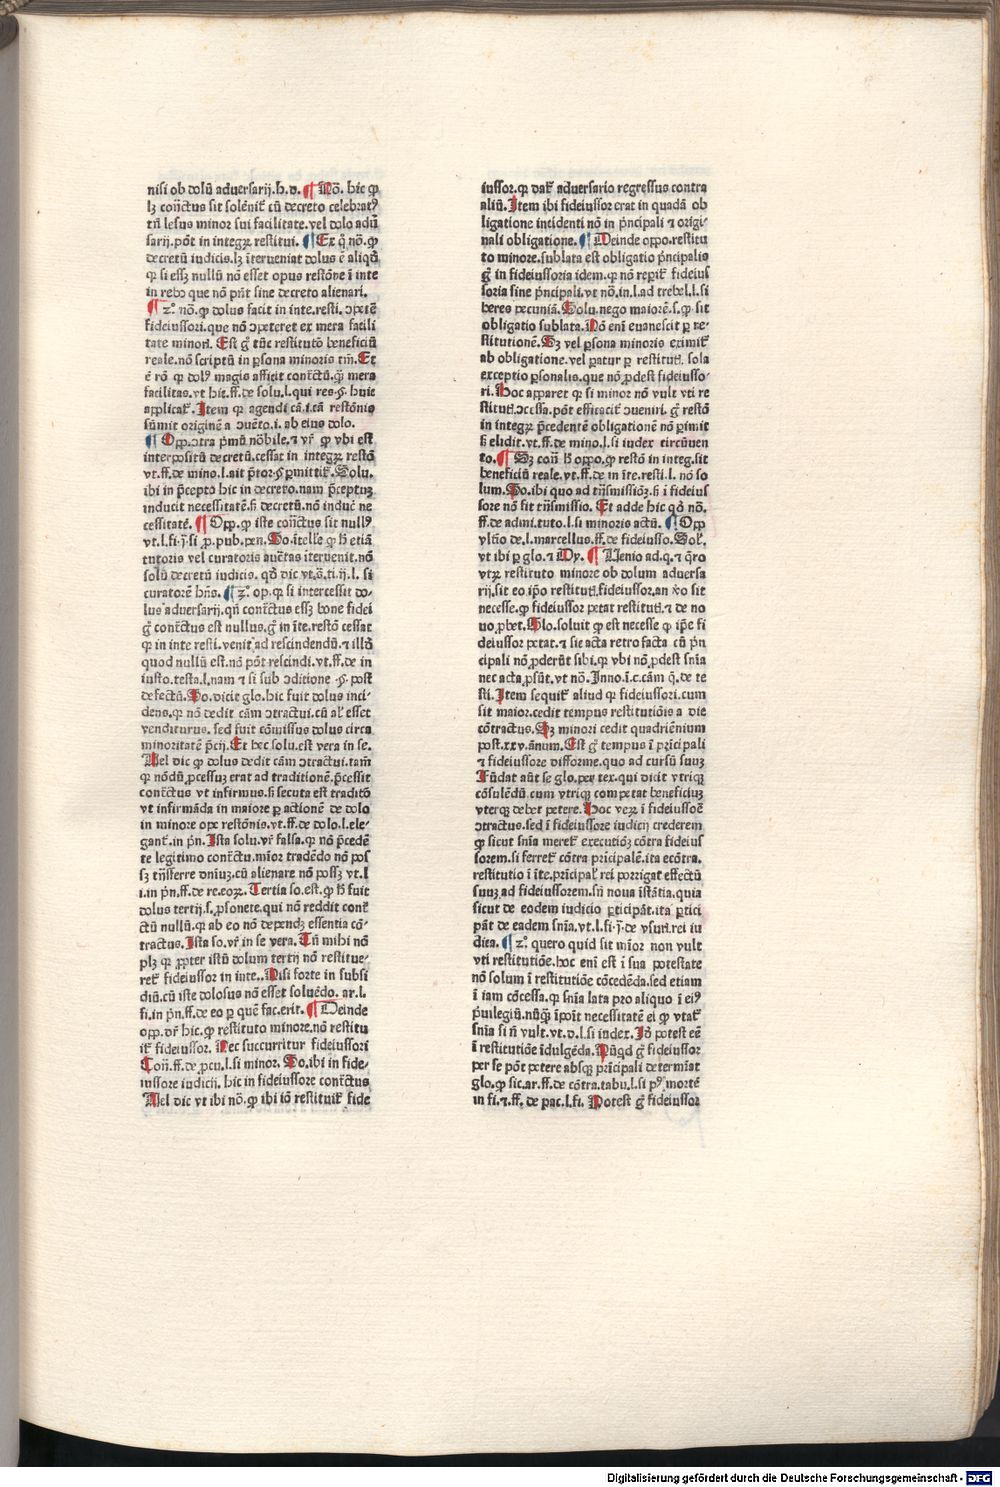 nisi ob dolū aduersarij.h.d. ¶ Nō. hic ꝙ
lꝫ cōtr̄ctus sit solēnit̄ cū decreto celebratꝰ
tn̄ lesus minor sui facilitate.vel dolo adū
sarij.pōt in integꝝ restitui. ¶ Ex q̊ nō.ꝙ
decretū iudicis.lꝫ īterueniat dolus ē aliqđ
ꝙ si essꝫ nullū nō esset opus restōne ī inte
in rebꝰ que nō pn̄t sine decreto alienari.
¶ z° nō.ꝙ dolus facit in inte.resti. ɔpetē
fideiussori.que nō ɔpeteret ex mera facili
tate minori. Est g̊ tūc restitutō beneficiū
reale.nō scriptū in ꝑsona minoris tm̄. Et
ē rō ꝙ dolꝰ magis afficit cont̄ctū.q̄ mera
facilitas.vt hic.ff.de solu.l.qui res.§.huic
applicat̄. Item qꝛ agendi cā.i.cā restōnis
sūmit originē a ɔuēto.i. ab eius dolo.
¶ Opp.ɔtra pmū nōbile.⁊ vr̄ ꝙ vbi est
interpositū decretū.cessat in integꝝ restō
vt.ff.de mino.l.ait p̄tor.§.ꝑmittit̄. Solu.
ibi in p̄cepto hic in decreto.nam p̄ceptuꝫ
inducit necessitatē.sꝫ decretū.nō induc̄ ne
cessitatē. ¶ Opp.ꝙ iste cont̄ctus sit nullꝰ
vt.l.fi.§.si ꝓ.pub.pen. So.ītelle ꝙ hꝫ etiā
tutoris vel curatoris auctas īteruenit.nō
solū decretū iudicis. qđ dic vt.ꝯ.ti.ij.l. si
curatorē hn̄s. ¶ z° op.qꝛ si intercessit do-
lus aduersarij.qn̄ cont̄ctus essꝫ bone fidei
g̊ cont̄ctus est nullus.g̊ in īte.restō cessat
qꝛ in inte resti.venit ad rescindendū.⁊ illđ
quod nullū est.nō pōt rescindi.vt.ff.de in
iusto.testa.l.nam ⁊ si sub ɔditione .§. post
defectū. So.dicit glo.hic fuit dolus inci-
dens.qꝛ nō dedit cām ɔtractui.cū al' esset
venditurus. sed fuit cōmissus dolus circa
minoritatē p̄cij. Et hec solu.est vera in se.
Uel dic ꝙ dolus dedit cām ɔtractui.tam̄
qꝛ nōdū ꝓcessuꝫ erat ad traditionē.p̄cessit
cont̄ctus vt infirmus.sꝫ secuta est traditō
vt infirmāda in maiore ꝑ actionē de dolo
in minore ope restōnis.vt.ff.de dolo.l.ele-
gant̄.in pn̄. Ista solu.vr̄ falsa.qꝛ nō p̄cedē
te legitimo cont̄ctu.mīor tradēdo nō pos
sꝫ tn̄sferre dn̄iuꝫ.cū alienare nō possꝫ vt.l
i.in pn̄.ff.de re.eoꝝ. Tertia so.est.ꝙ hꝫ fuit
dolus tertij.s.ꝑsonete.qui nō reddit cont̄
ctū nullū.qꝛ ab eo nō dependꝫ essentia cō-
tractus. Ista so.vr̄ in se vera. Tn̄ mihi nō
plꝫ qꝛ ꝓpter istū dolum tertij nō restitue-
ret̄ fideiussor in inte.. Nisi forte in subsi
diū.cū iste dolosus nō esset soluēdo. ar.l.
fi.in pn̄.ff.de eo ꝑ quē fac.erit. ¶ Deinde
opp.dr̄ hic.ꝙ restituto minore.nō restitu
it̄ fideiussor. Nec succurritur fideiussori
Con̄.ff.de ꝓcu.l.si minor. So.ibi in fide-
iussore iudicij. hic in fideiussore cont̄ctus
Uel dic vt ibi nō.ꝙ ibi iō restituit̄ fide
iussor.qꝛ dat̄ aduersario regressus contra
aliū. Item ibi fideiussor erat in quadā ob
ligatione incidenti nō in p̄ncipali ⁊ origi-
nali obligatione. ¶ Deinde oppo.restitu
to minore.sublata est obligatio p̄ncipalis
g̊ in fideiussoria idem.qꝛ nō reꝑit̄ fideius
soria sine p̄ncipali.vt nō.in.l.ad trebel.l.si
heres pecuniā. Solu.nego maiorē.s.ꝙ sit
obligatio sublata. Nō enī euanescit ꝑ re-
stitutionē. Sꝫ vel ꝑsona minoris eximit̄
ab obligatione.vel patur ꝑ restitutī. sola
exceptio ꝑsonalis.que nō ꝓdest fideiusso-
ri. Hoc apparet qꝛ si minor nō vult vti re
stitutī.ɔcessa.pōt efficacit̄ ɔueniri. g̊ restō
in integꝝ p̄cedentē obligationē nō ꝑimit
sꝫ elidit.vt.ff.de mino.l.si iudex circūuen
to. ¶ Sꝫ con̄ hꝫ oppo.ꝙ restō in integ.sit
beneficiū reale.vt.ff.de in īte.resti.l. nō so
lum. So.ibi quo ad tn̄smissiōꝫ.sꝫ i fideius
sore nō fit tn̄smissio. Et adde hic qđ nō.
ff.de admi.tuto.l.si minoris actū. ¶ Opp
yltīo de.l.marcellus.ff.de fideiusso. Sol'.
vt ibi ꝑ glo.⁊ Dy. ¶ Uenio ad.q.⁊ q̄ro
vtꝝ restituto minore ob dolum aduersa
rij.sit eo ip̄o restitutꝰ.fideiussor.an ꝟo sit
necesse.ꝙ fideiussor petat restitutī.⁊ de no
uo ꝓbet. Glo.soluit ꝙ est necesse ꝙ ip̄e fi
deiussor petat.⁊ sic acta retro facta cū p̄n
cipali nō ꝓderūt sibi.qꝛ vbi nō ꝓdest sn̄ia
nec acta ꝓsūt.vt nō. Inno.ī.c.cām q̄.de te
sti. Item sequit̄ aliud ꝙ fideiussori.cum
sit maior.cedit tempus restitutiōis a die
cōtractus. Sꝫ minori cedit quadriēnium
post.xxv.ānum. Est g̊ tempus ī pricipali
⁊ fideiussore difforme.quo ad cursū suuꝫ
Fūdat aūt se glo.per tex.qui dicit vtriqꝫ
cōsulēdū.cum vtriqꝫ competat beneficiuꝫ
vterqꝫ debet petere. Hoc veꝝ ī fideiussoē
ɔtractus.sed ī fideiussore iudicij crederem
ꝙ sicut sn̄ia meret̄ executiōꝫ cōtra fideius
sorem.si ferret̄ cōtra pricipalē.ita ecōtra.
restitutio ī īte.pricipal' rei porrigat effectū
suuꝫ ad fideiussorem.sn̄ noua īstātia.quia
sicut de eodem iudicio ꝑticipāt.ita ꝑtici
pāt de eadem sn̄ia.vt.l.fi.§.de vsur.rei iu
dica. ¶ z° quero quid sit mīor non vult
vti restitutiōe.hoc enī est ī sua potestate
nō solum ī restitutiōe cōcedēda.sed etiam
ī iam cōcessa.qꝛ sn̄ia lata pro aliquo ī eiꝰ
p̄uilegiū.nūqͣ īpoīt necessitatē ei ꝙ vtat̄
sn̄ia si n̄ vult.vt.d.l.si iudex. Iō potest eē
ī restitutiōe īdulgēda. Nūqd g̊ fideiussor
per se pōt petere absqꝫ prīcipali determīat
glo.ꝙ sic.ar.ff.de cōtra.tabu.l.si pꝰ mortē
in fi.⁊.ff. de pac.l.fi. Potest g̊ fideiussor
Digitalisierung gefördert durch die Deutsche Forschungsgemeinschaft - DFG